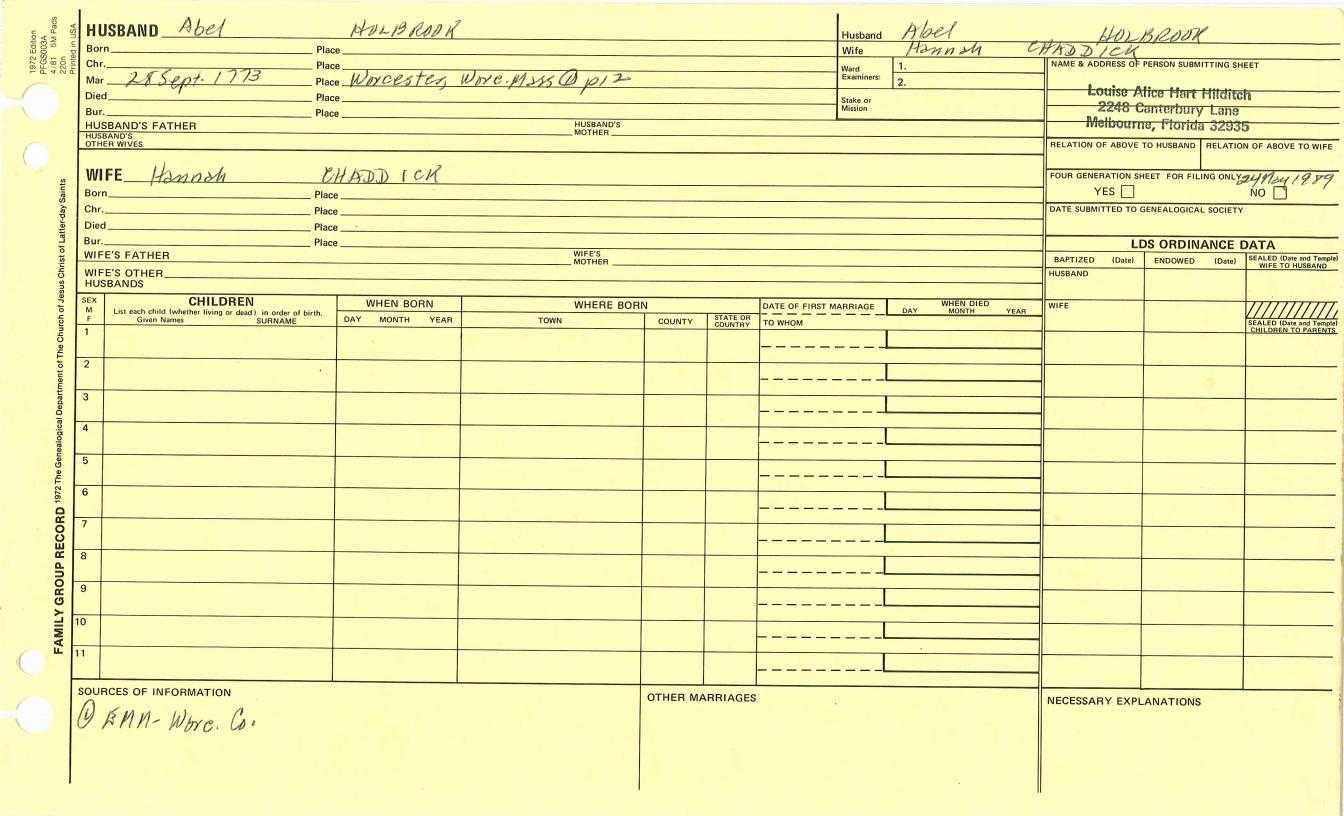 1972 Edition
PFGS003A
4/81 5M Pads
220n
Printed in USA
FAMILY GROUP RECORD 1972 The Genealogical Department of The Church of Jesus Christ of Latter-day Saints
HUSBAND Abel HOLBROOK
Born Place
Chr. Place
Mar 28 Sept. 1773 Place Worcester, Worc. Mass ① p12
Died Place
Bur. Place
HUSBAND'S FATHER HUSBAND'S MOTHER
HUSBAND'S OTHER WIVES
WIFE Hannah CHADDICK
Born Place
Chr. Place
Died Place
Bur. Place
WIFE'S FATHER WIFE'S MOTHER
WIFE'S OTHER HUSBANDS
Husband Abel HOLBROOK
Wife Hannah CHADDICK
Ward Examiners: 1.
2.
Stake or Mission
NAME & ADDRESS OF PERSON SUBMITTING SHEET
Louise Alice Hart Hilditch
2248 Canterbury Lane
Melbourne, Florida 32935
RELATION OF ABOVE TO HUSBAND RELATION OF ABOVE TO WIFE
FOUR GENERATION SHEET FOR FILING ONLY 24 May 1989
YES NO
DATE SUBMITTED TO GENEALOGICAL SOCIETY
LDS ORDINANCE DATA
BAPTIZED (Date) ENDOWED (Date) SEALED (Date and Temple) WIFE TO HUSBAND
HUSBAND
WIFE
SEALED (Date and Temple) CHILDREN TO PARENTS
SEX M F
CHILDREN
List each child (whether living or dead) in order of birth.
Given Names SURNAME
WHEN BORN
DAY MONTH YEAR
WHERE BORN
TOWN COUNTY STATE OR COUNTRY
DATE OF FIRST MARRIAGE
TO WHOM
WHEN DIED
DAY MONTH YEAR
1
2
3
4
5
6
7
8
9
10
11
SOURCES OF INFORMATION
① Worc. Co.
OTHER MARRIAGES
NECESSARY EXPLANATIONS